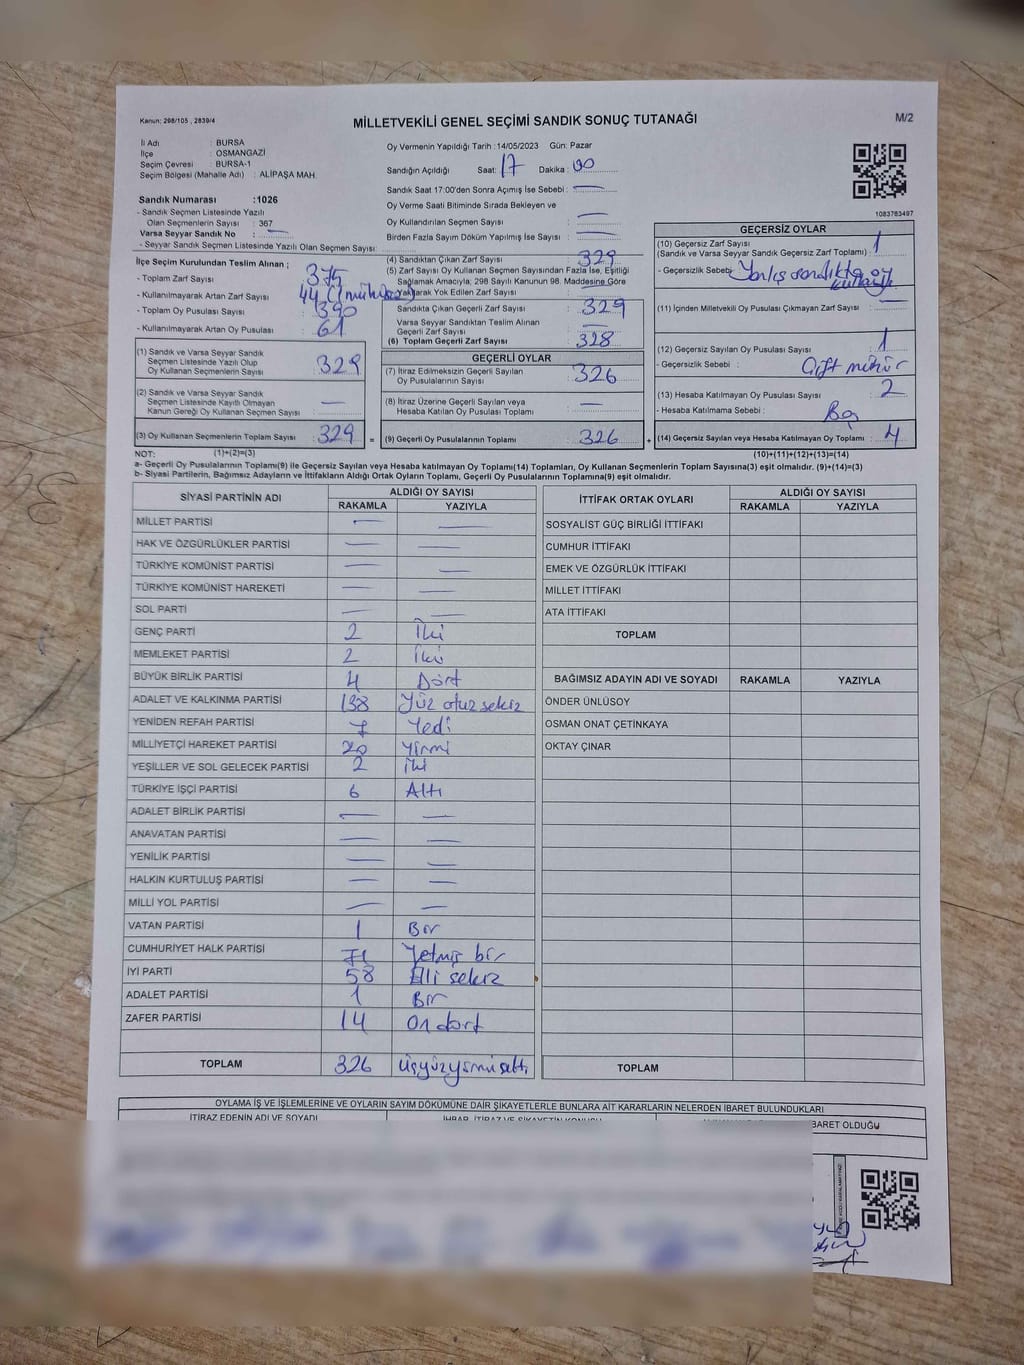 Kanun: 298/105 , 2839/4
MİLLETVEKİLİ GENEL SEÇİMİ SANDIK SONUÇ TUTANAĞI
M/2
İl Adı : BURSA
İlçe : OSMANGAZİ
Seçim Çevresi : BURSA-1
Seçim Bölgesi (Mahalle Adı) : ALİPAŞA MAH.
Sandık Numarası :1026
- Sandık Seçmen Listesinde Yazılı
Olan Seçmenlerin Sayısı : 367
Varsa Seyyar Sandık No : —
- Seyyar Sandık Seçmen Listesinde Yazılı Olan Seçmen Sayısı:
Oy Vermenin Yapıldığı Tarih :14/05/2023 Gün: Pazar
Sandığın Açıldığı Saat: 17 Dakika : 00
Sandık Saat 17:00'den Sonra Açımış İse Sebebi : —
Oy Verme Saati Bitiminde Sırada Bekleyen ve
Oy Kullandırılan Seçmen Sayısı : —
Birden Fazla Sayım Döküm Yapılmış İse Sayısı : —
1083783497
İlçe Seçim Kurulundan Teslim Alınan ;
- Toplam Zarf Sayısı : 375
- Kullanılmayarak Artan Zarf Sayısı : 44
- Toplam Oy Pusulası Sayısı : 390
- Kullanılmayarak Artan Oy Pusulası : 61
(1) Sandık ve Varsa Seyyar Sandık
Seçmen Listesinde Yazılı Olup
Oy Kullanan Seçmenlerin Sayısı : 329
(2) Sandık ve Varsa Seyyar Sandık
Seçmen Listesinde Kayıtlı Olmayan
Kanun Gereği Oy Kullanan Seçmen Sayısı : —
(3) Oy Kullanan Seçmenlerin Toplam Sayısı : 329
(4) Sandıktan Çıkan Zarf Sayısı : 329
(5) Zarf Sayısı Oy Kullanan Seçmen Sayısından Fazla İse, Eşitliği
Sağlamak Amacıyla; 298 Sayılı Kanunun 98. Maddesine Göre
Yakılarak Yok Edilen Zarf Sayısı : —
Sandıkta Çıkan Geçerli Zarf Sayısı : 329
Varsa Seyyar Sandıktan Teslim Alınan
Geçerli Zarf Sayısı : —
(6) Toplam Geçerli Zarf Sayısı : 328
GEÇERLİ OYLAR
(7) İtiraz Edilmeksizin Geçerli Sayılan
Oy Pusulalarının Sayısı : 326
(8) İtiraz Üzerine Geçerli Sayılan veya
Hesaba Katılan Oy Pusulası Toplamı : —
= (9) Geçerli Oy Pusulalarının Toplamı : 326 +
GEÇERSİZ OYLAR
(10) Geçersiz Zarf Sayısı : 1
(Sandık ve Varsa Seyyar Sandık Geçersiz Zarf Toplamı)
- Geçersizlik Sebebi : Yanlış sandıkta oy
(11) İçinden Milletvekili Oy Pusulası Çıkmayan Zarf Sayısı : —
(12) Geçersiz Sayılan Oy Pusulası Sayısı : 1
- Geçersizlik Sebebi : Çift mühür
(13) Hesaba Katılmayan Oy Pusulası Sayısı : 2
- Hesaba Katılmama Sebebi : Boş
(14) Geçersiz Sayılan veya Hesaba Katılmayan Oy Toplamı : 4
NOT: (1)+(2)=(3) (10)+(11)+(12)+(13)=(14)
a- Geçerli Oy Pusulalarının Toplamı(9) ile Geçersiz Sayılan veya Hesaba katılmayan Oy Toplamı(14) Toplamları, Oy Kullanan Seçmenlerin Toplam Sayısına(3) eşit olmalıdır. (9)+(14)=(3)
b- Siyasi Partilerin, Bağımsız Adayların ve İttifakların Aldığı Ortak Oyların Toplamı, Geçerli Oy Pusulalarının Toplamına(9) eşit olmalıdır.
SİYASİ PARTİNİN ADI ALDIĞI OY SAYISI
RAKAMLA YAZIYLA
MİLLET PARTİSİ — —
HAK VE ÖZGÜRLÜKLER PARTİSİ — —
TÜRKİYE KOMÜNİST PARTİSİ — —
TÜRKİYE KOMÜNİST HAREKETİ — —
SOL PARTİ — —
GENÇ PARTİ 2 İki
MEMLEKET PARTİSİ 2 İki
BÜYÜK BİRLİK PARTİSİ 4 Dört
ADALET VE KALKINMA PARTİSİ 138 Yüz otuz sekiz
YENİDEN REFAH PARTİSİ 7 Yedi
MİLLİYETÇİ HAREKET PARTİSİ 20 Yirmi
YEŞİLLER VE SOL GELECEK PARTİSİ 2 İki
TÜRKİYE İŞÇİ PARTİSİ 6 Altı
ADALET BİRLİK PARTİSİ — —
ANAVATAN PARTİSİ — —
YENİLİK PARTİSİ — —
HALKIN KURTULUŞ PARTİSİ — —
MİLLİ YOL PARTİSİ — —
VATAN PARTİSİ 1 Bir
CUMHURİYET HALK PARTİSİ 71 Yetmiş bir
İYİ PARTİ 58 Elli sekiz
ADALET PARTİSİ 1 Bir
ZAFER PARTİSİ 14 On dört
TOPLAM 326 Üçyüzyirmialtı
İTTİFAK ORTAK OYLARI ALDIĞI OY SAYISI
RAKAMLA YAZIYLA
SOSYALİST GÜÇ BİRLİĞİ İTTİFAKI
CUMHUR İTTİFAKI
EMEK VE ÖZGÜRLÜK İTTİFAKI
MİLLET İTTİFAKI
ATA İTTİFAKI
TOPLAM
BAĞIMSIZ ADAYIN ADI VE SOYADI RAKAMLA YAZIYLA
ÖNDER ÜNLÜSOY
OSMAN ONAT ÇETİNKAYA
OKTAY ÇINAR
TOPLAM
OYLAMA İŞ VE İŞLEMLERİNE VE OYLARIN SAYIM DÖKÜMÜNE DAİR ŞİKAYETLERLE BUNLARA AİT KARARLARIN NELERDEN İBARET BULUNDUKLARI
İTİRAZ EDENİN ADI VE SOYADI
İBARET OLDUĞU